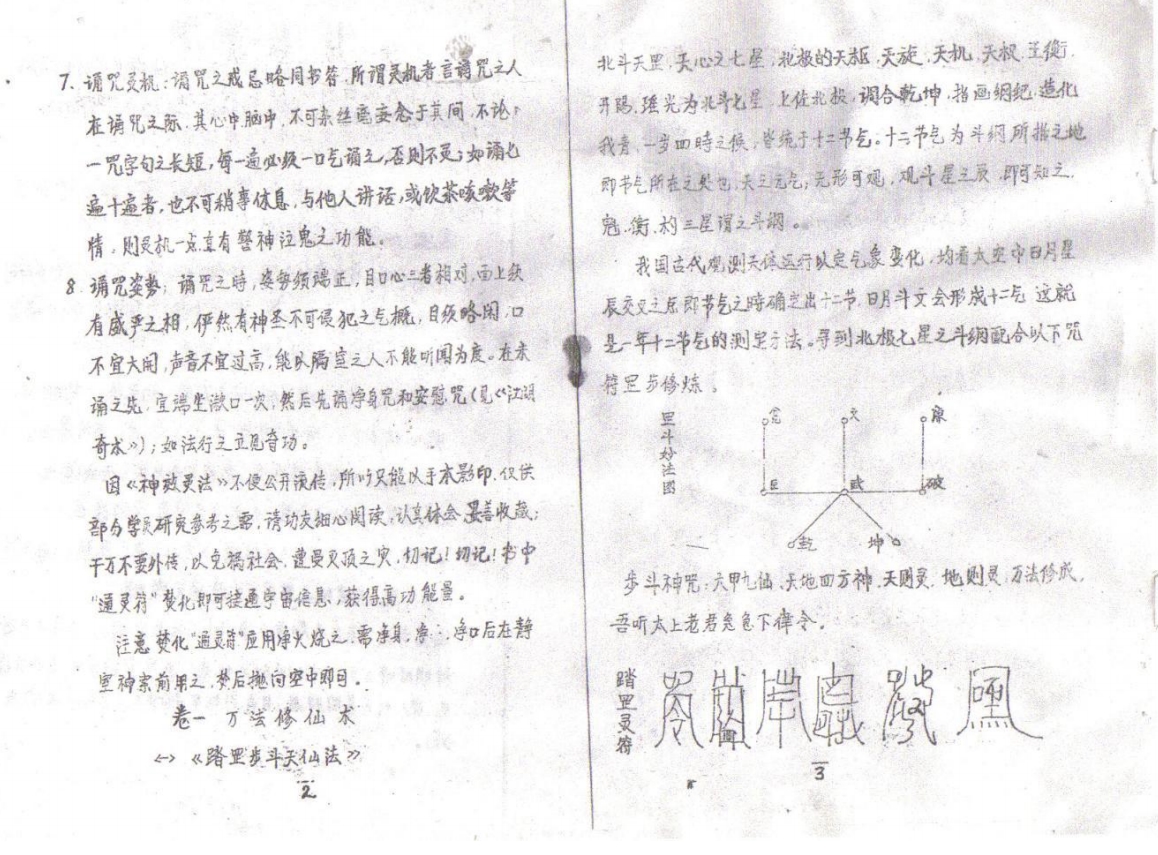 7、诵咒灵机：诵咒之戒忌略同书符，所谓灵机者言诵咒之人
在诵咒之际，其心中脑中，不可杂丝毫妄念于其间，不论
一咒字句之长短，每一遍必须一口气诵之，否则不灵；如诵七
遍十遍者，也不可稍事休息，与他人讲话，或饮茶咳嗽等
情，则灵机一点直有警神泣鬼之功能。
8、诵咒姿势：诵咒之时，姿势须端正，目口心三者相对，面上须
有威严之相，俨然有神圣不可侵犯之气概，目须略闭，口
不宜大闹，声音不宜过高，能以隔室之人不能听闻为度。在未
诵之先，宜端坐漱口一次，然后先诵净身咒和安慰咒（见《江湖
奇术》）；如法行之立见奇功。
因《神效灵法》不便公开流传，所以只能以手本影印，仅供
部分学员研究参考之需，请功友细心阅读，认真体会，妥善收藏；
千万不要外传，以免祸社会，遭灵灭顶之灾，切记！切记！书中
“通灵符”焚化即可接通宇宙信息，获得高功能量。
注意：焚化“通灵符”应用净火烧之，需净身，净、净口后在静
室神宗前用之，焚后抛向空中即可。
卷一 万法修仙术
<一> 《踏罡步斗天仙法》
2
北斗天罡，天心之七星，北极的天枢，天旋，天机，天权，玉衡，
开阳，瑶光为北斗七星，上佐北极，调合乾坤，指画纲纪，造化
我育，一岁四時之候，皆统于十二节气。十二节气为斗纲所指之地
即节气所在之处也，天之元气，无形可观，观斗星之辰，即可知之，
魁、衡、杓三星谓之斗纲。
我国古代观测天体运行以定气象变化，均看太空中日月星
辰交叉之后即节气之時确定出十二节，日月斗文会形成十二气 这就
是一年十二节气的测定方法。寻到北极七星之斗纲配合以下咒
符罡步修炼。
罡斗妙法图
荒 文 廉
巨 武 破
乾 坤
步斗神咒：六甲九仙，天地四方神，天则灵，地则灵，万法修成，
吾听太上老君急急下律令。
踏罡灵符
3